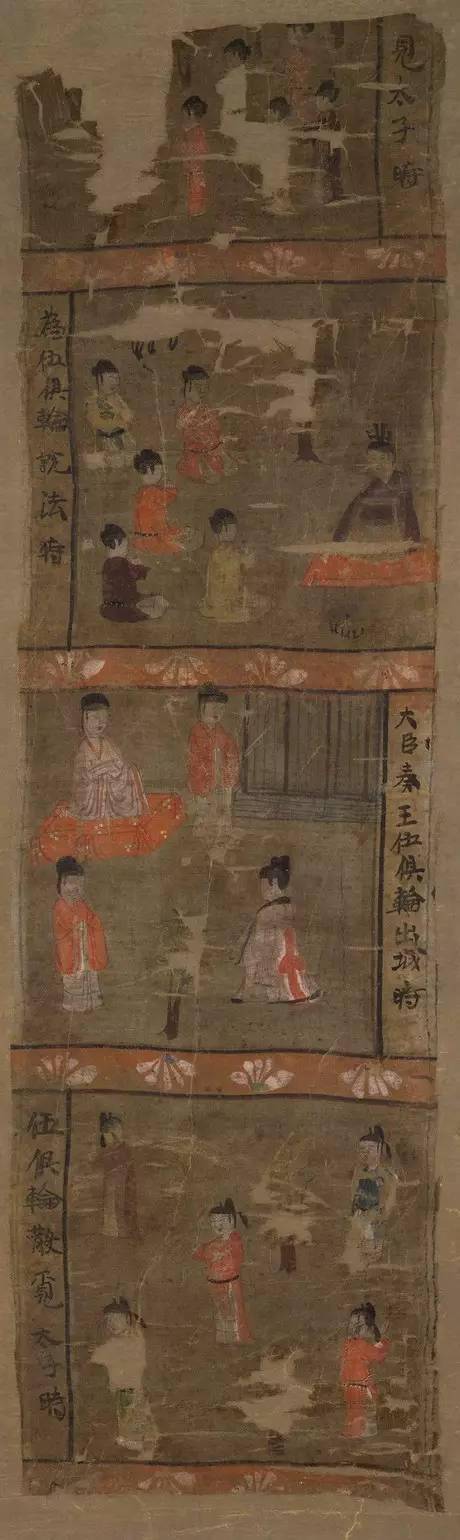 見太子時
為伍俱輪說法時
大臣奏王伍俱輪出城時
伍俱輪散覓太子時